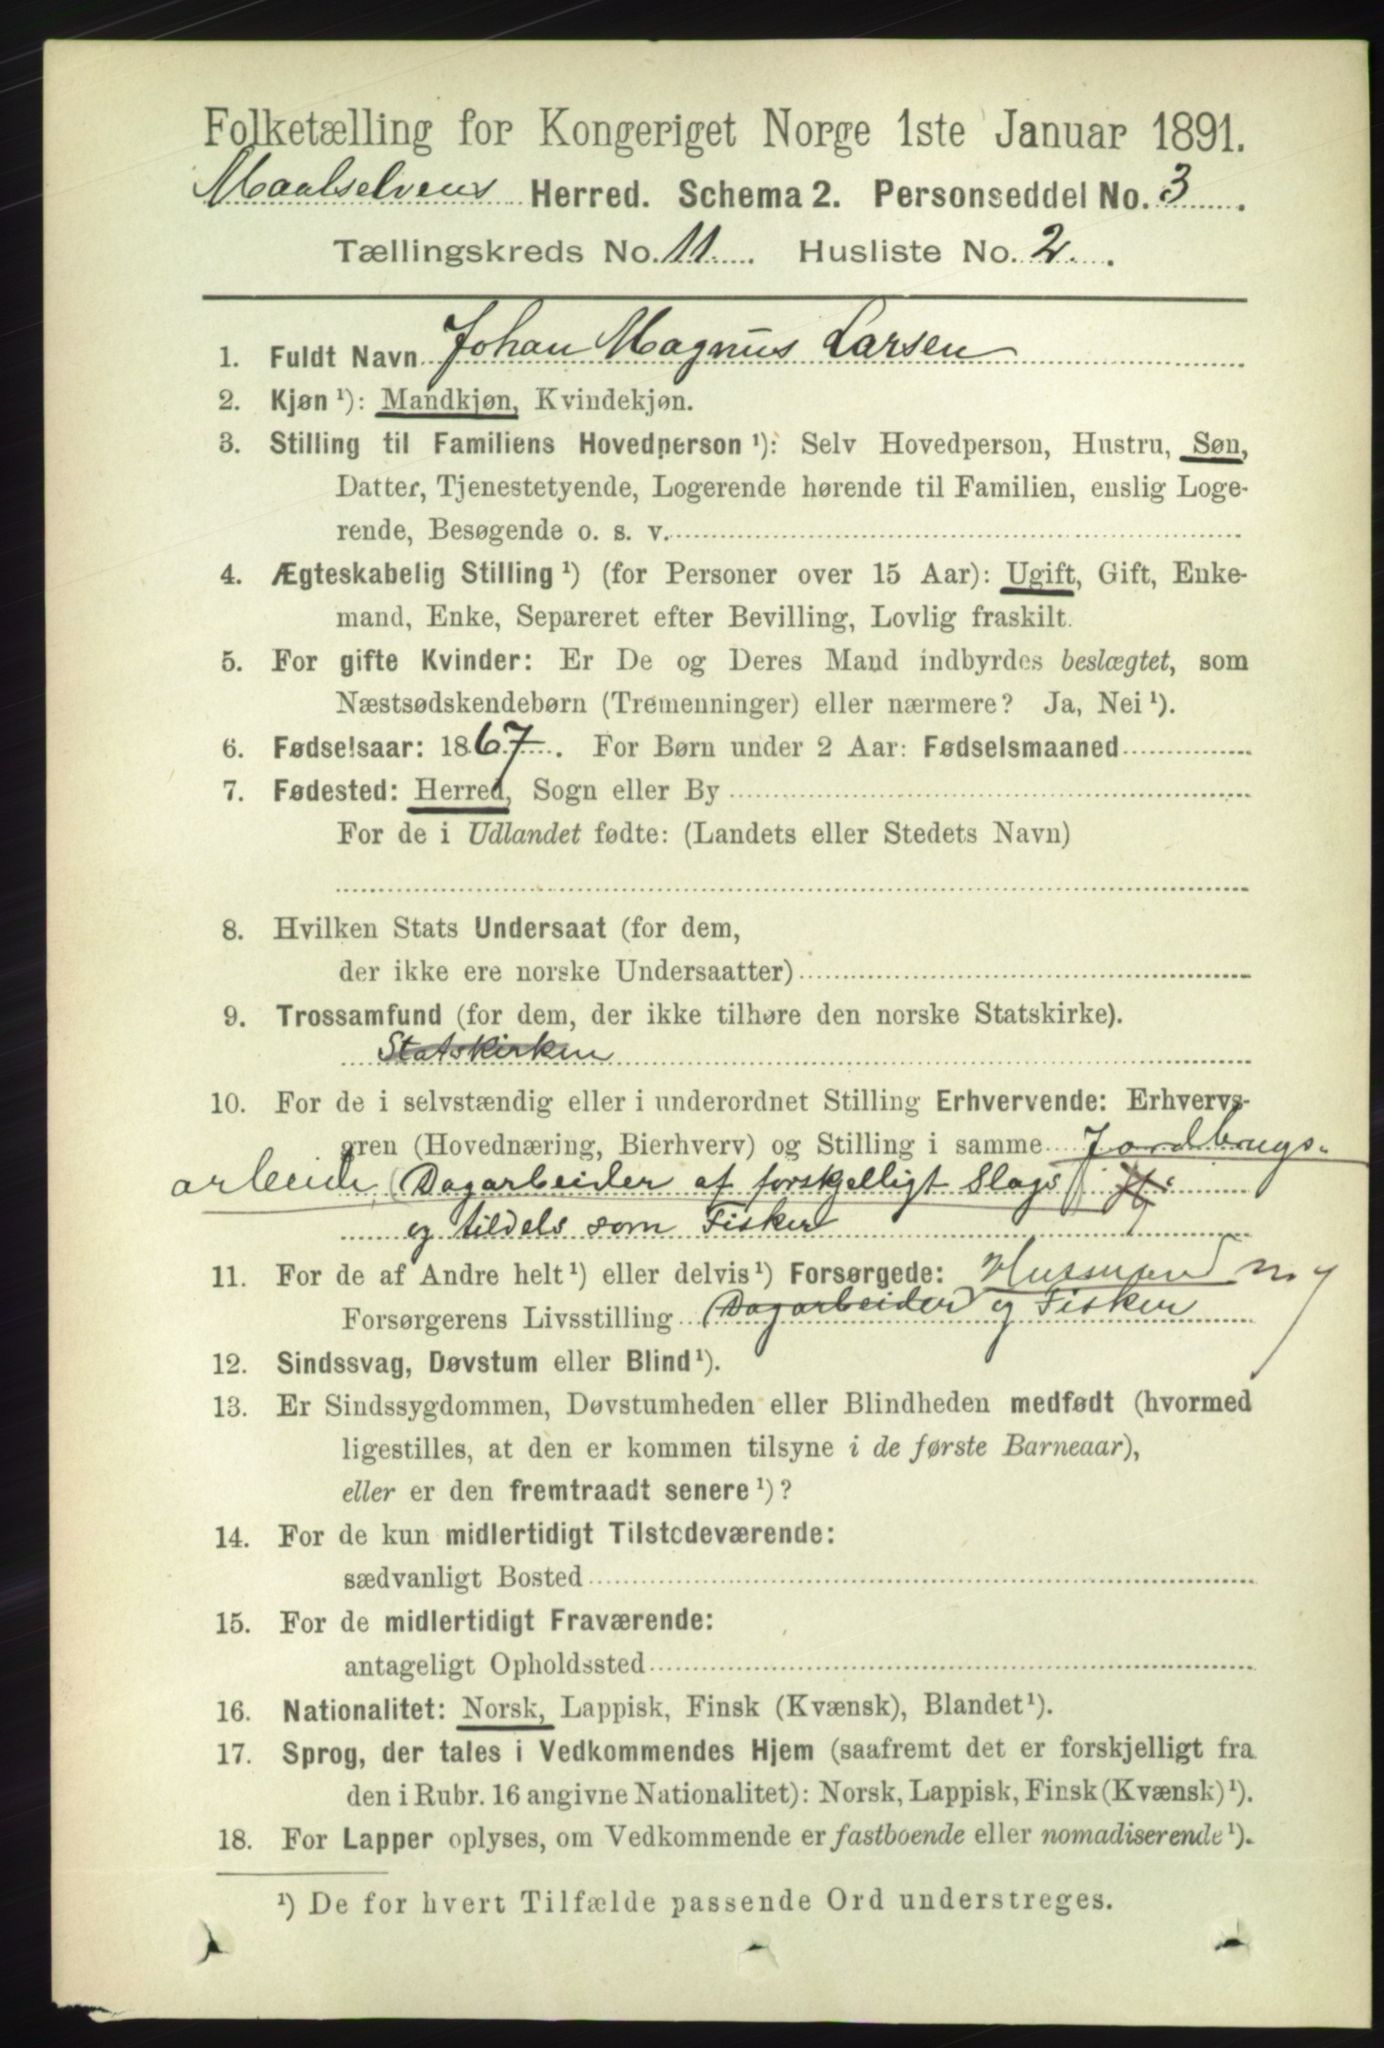 Folketælling for Kongeriget Norge 1ste Januar 1891.
Maalselvens Herred. Schema 2. Personseddel No. 3.
Tællingskreds No. 11. Husliste No. 2.
1. Fuldt Navn Johan Magnus Larsen
2. Kjøn ¹): Mandkjøn, Kvindekjøn.
3. Stilling til Familiens Hovedperson ¹): Selv Hovedperson, Hustru, Søn,
Datter, Tjenestetyende, Logerende hørende til Familien, enslig Loge-
rende, Besøgende o. s. v.
4. Ægteskabelig Stilling ¹) (for Personer over 15 Aar): Ugift, Gift, Enke-
mand, Enke, Separeret efter Bevilling, Lovlig fraskilt.
5. For gifte Kvinder: Er De og Deres Mand indbyrdes beslægtet, som
Næstsødskendebørn (Tremenninger) eller nærmere? Ja, Nei ¹).
6. Fødselsaar: 1867. For Børn under 2 Aar: Fødselsmaaned
7. Fødested: Herred, Sogn eller By
For de i Udlandet fødte: (Landets eller Stedets Navn)
8. Hvilken Stats Undersaat (for dem,
der ikke ere norske Undersaatter)
9. Trossamfund (for dem, der ikke tilhøre den norske Statskirke).
Statskirken
10. For de i selvstændig eller i underordnet Stilling Erhvervende: Erhvervs-
gren (Hovednæring, Bierhverv) og Stilling i samme Jordbrugs-
arbeide, (Dagarbeider af forskjelligt Slags)
og tildels som Fisker
11. For de af Andre helt ¹) eller delvis ¹) Forsørgede: Husmand m. j
Forsørgerens Livsstilling (Dagarbeider) og Fisker
12. Sindssvag, Døvstum eller Blind ¹).
13. Er Sindssygdommen, Døvstumheden eller Blindheden medfødt (hvormed
ligestilles, at den er kommen tilsyne i de første Barneaar),
eller er den fremtraadt senere ¹)?
14. For de kun midlertidigt Tilstedeværende:
sædvanligt Bosted
15. For de midlertidigt Fraværende:
antageligt Opholdssted
16. Nationalitet: Norsk, Lappisk, Finsk (Kvænsk), Blandet ¹).
17. Sprog, der tales i Vedkommendes Hjem (saafremt det er forskjelligt fra
den i Rubr. 16 angivne Nationalitet): Norsk, Lappisk, Finsk (Kvænsk) ¹).
18. For Lapper oplyses, om Vedkommende er fastboende eller nomadiserende ¹).
¹) De for hvert Tilfælde passende Ord understreges.